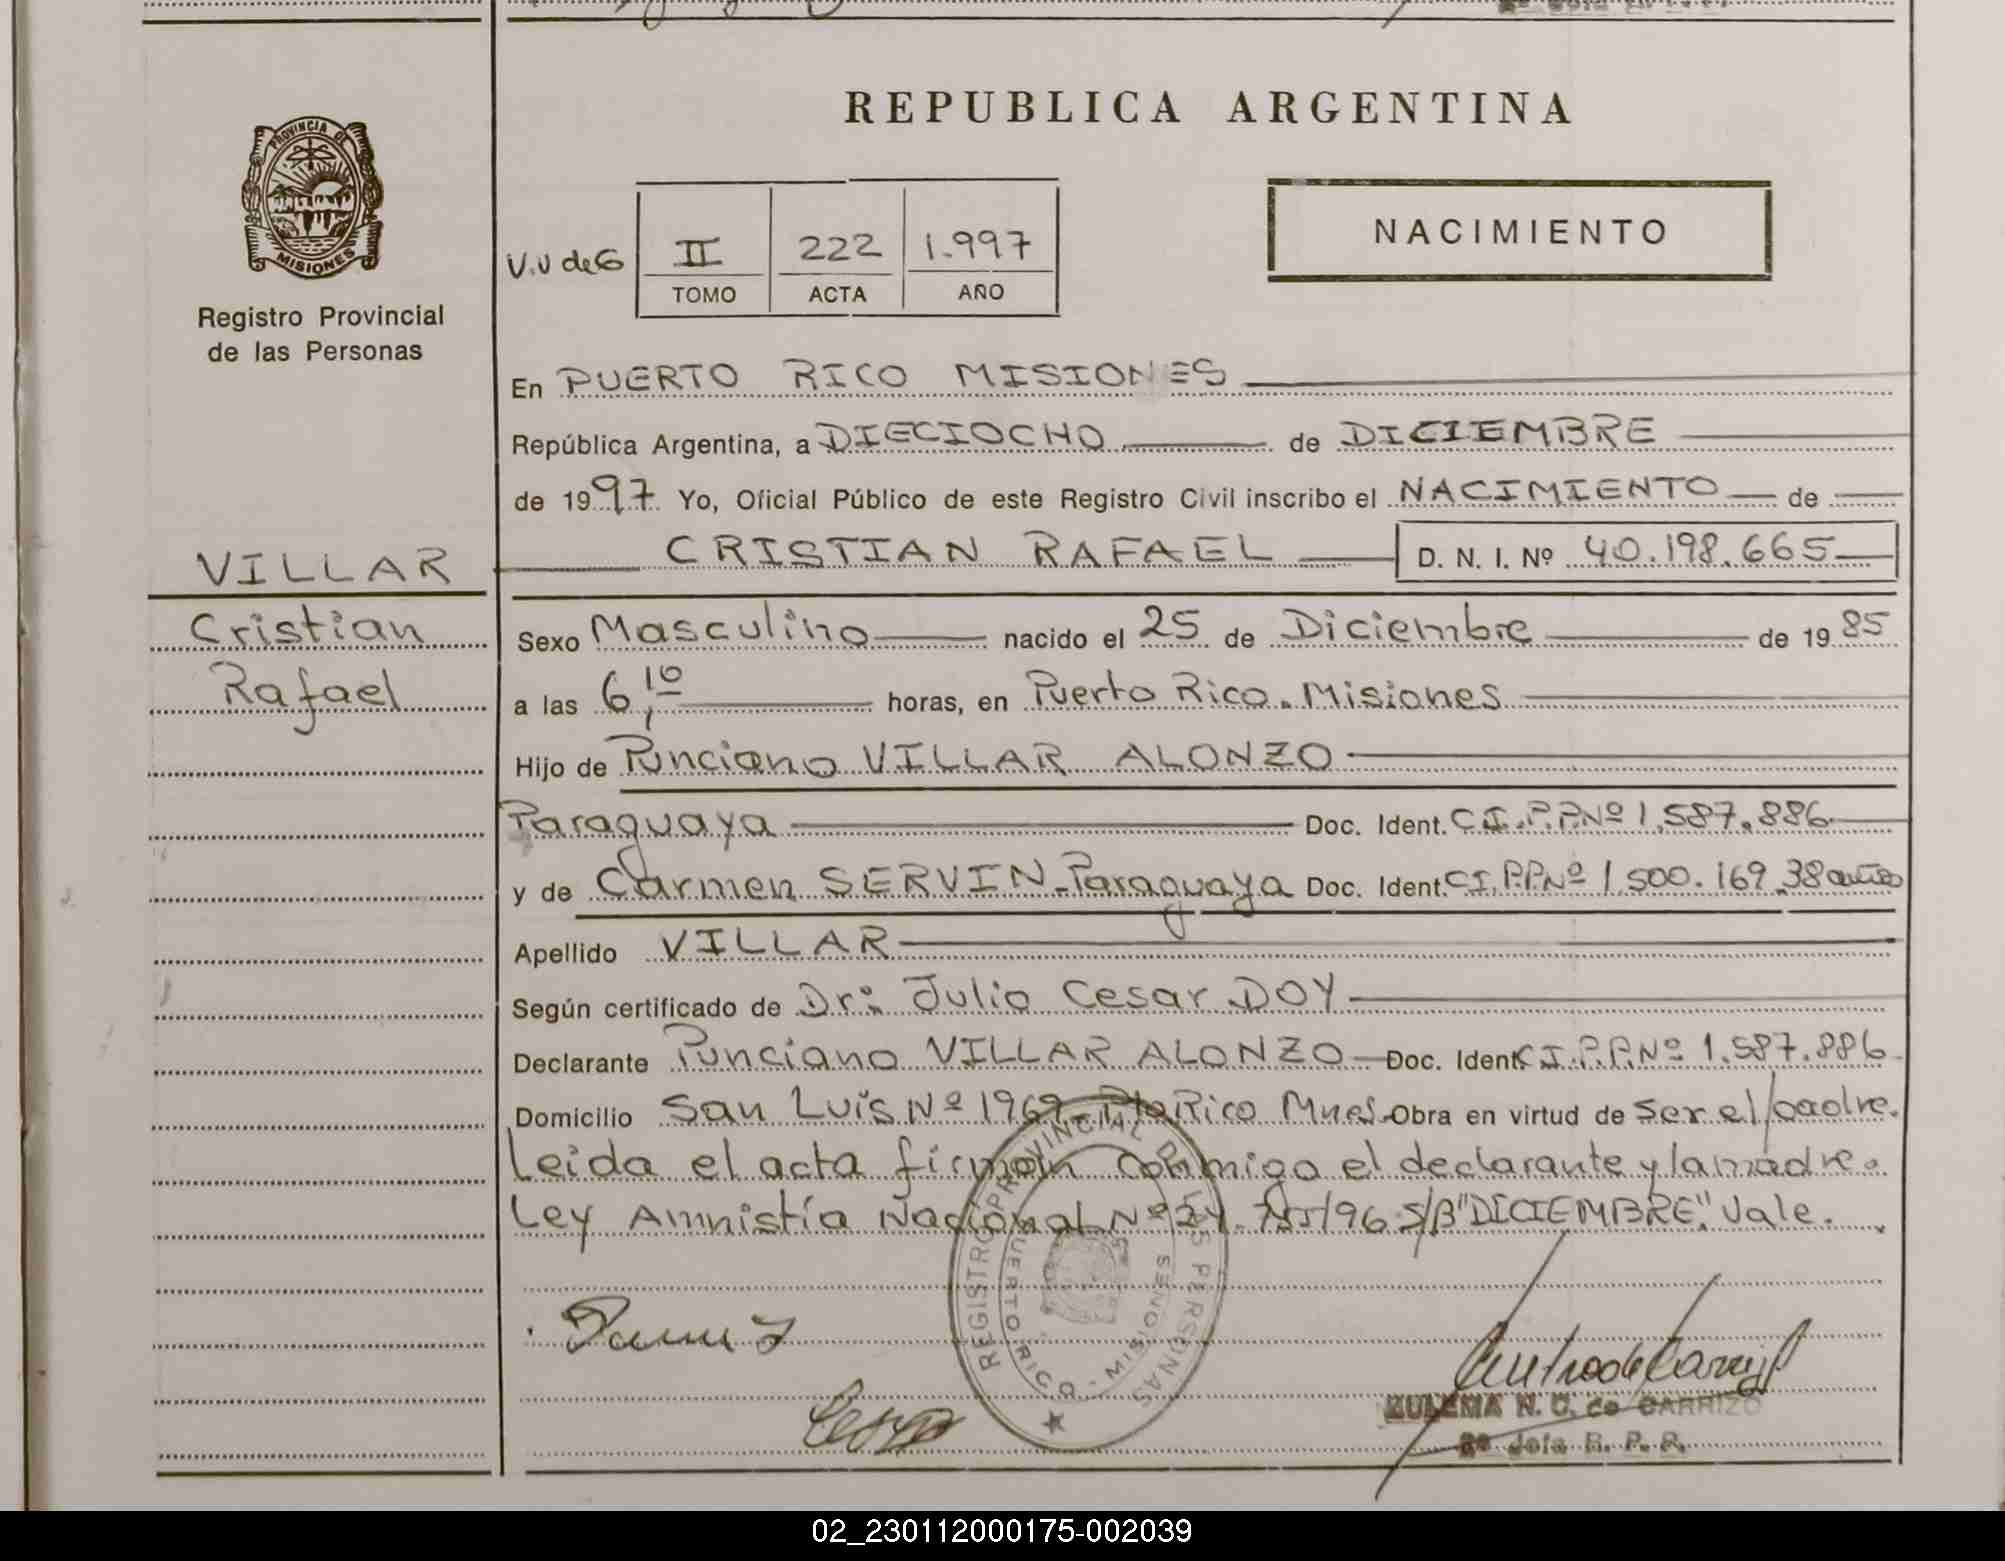 REPUBLICA ARGENTINA
PROVINCIA DE MISIONES
Registro Provincial
de las Personas
V.U de G
II
222
1.997
TOMO
ACTA
AÑO
NACIMIENTO
En PUERTO RICO MISIONES
República Argentina, a DIECIOCHO de DICIEMBRE
de 1997 Yo, Oficial Público de este Registro Civil inscribo el NACIMIENTO de
CRISTIAN RAFAEL D. N. I. Nº 40.198.665
VILLAR
Cristian
Rafael
Sexo Masculino nacido el 25 de Diciembre de 1985
a las 6,10 horas, en Puerto Rico. Misiones
Hijo de Punciano VILLAR ALONZO
Paraguaya Doc. Ident. C.I.P.P.Nº 1.587.886
y de Carmen SERVIN-Paraguaya Doc. Ident. C.I.P.P.Nº 1.500.169.38 años
Apellido VILLAR
Según certificado de Dr: Julio Cesar DOY
Declarante Punciano VILLAR ALONZO Doc. Ident. C.I.P.P.Nº 1.587.886
Domicilio San Luis Nº 1969 Pto Rico Mnes. Obra en virtud de ser el padre.
Leida el acta firman conmigo el declarante y la madre.
Ley Amnistía Nacional Nº 24.755/96 S/B "DICIEMBRE". Vale.
REGISTRO PROVINCIAL DE LAS PERSONAS
PUERTO RICO - MISIONES
ZULEMA N. C. de CARRIZO
2º Jefe R. P. P.
02_230112000175-002039